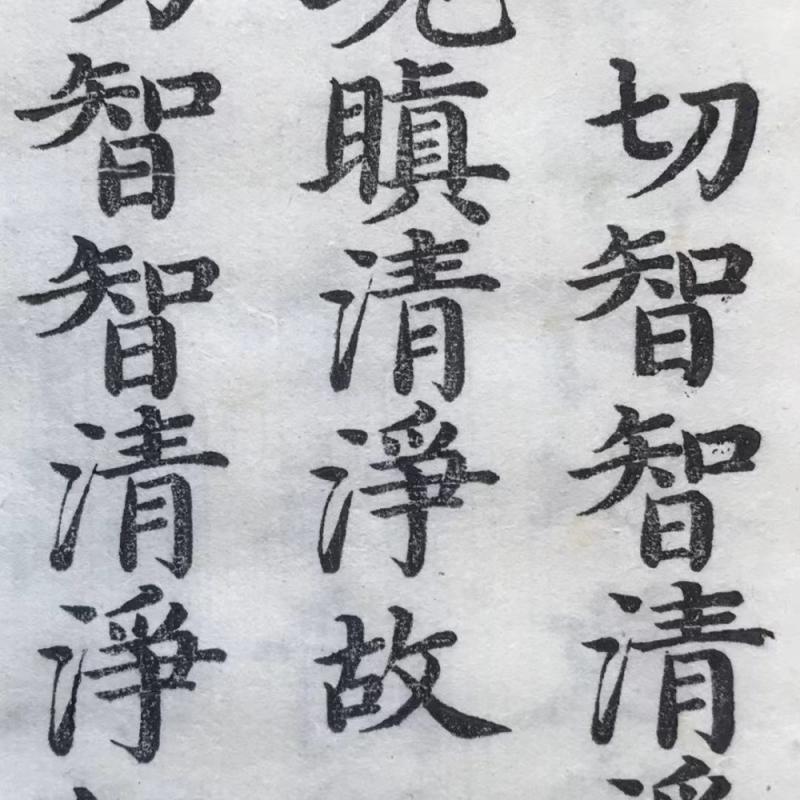 切智智清
瞋清淨故
智智清淨